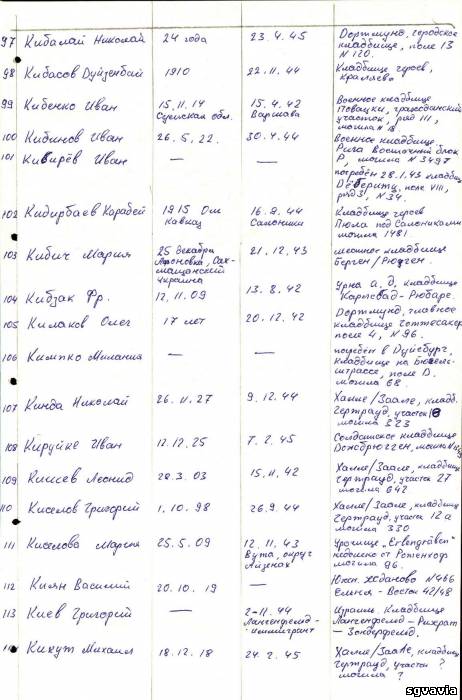 97 Кибалай Николай 24 года 23.4.45 Дортмунд, городское
кладбище, поле 13
N 120.
98 Кибасов Дуйзенбай 1910 22.11.44 Кладбище героев,
Кралево
99 Кибенко Иван 15.11.14 15.4.42 Военное кладбище
Сумская обл. Варшава Повацки, гражданский
участок, ряд III,
могила N 18
100 Кибинов Иван 26.5.22. 30.4.44 Военное кладбище
Рига Восточный блок
Р, могила N 3497
101 Кивирёв Иван — — погребён 28.1.43 кладбищ
Дёбериту, поле VIII,
ряд 3, N 34.
102 Кидирбаев Карабей 1915 Ош 16.9.44 Кладбище героев
Кавказ Салоники Пюла под Салониками
могила 1481
103 Кибич Мария 25 декабря 21.12.43 местное кладбище
украина Берген/Рюген.
104 Кибзак Фр. 12.11.09 13.8.42 Урна а.д. кладбище
Карлсбад-Рюбаре.
105 Килаков Олег 17 лет 20.12.42 Дортмунд, главное
кладбище Готтесакер
поле 4, N 96.
106 Кимпко Мелания — — погребён в Дуйсбург,
кладбище на Бюгель-
штрассе, поле D.
могила 68.
107 Кинда Николай 26.11.27 9.12.44 Халле/Заале, кладб.
Гертрауд, участок 18
могила 323
108 Кируйке Иван 12.12.25 7.2.45 Солдатское кладбище
109 Кисев Леонид 28.3.03 15.11.42 Халле/Заале, кладбище
Гертрауд, участок 27
могила 642
110 Киселов Григорий 1.10.98 26.9.44 Халле/Заале, кладбищ
Гертрауд, участок 12а
могила 330
111 Киселова Мария 25.5.09 12.11.43 урочище "Erbengräben"
Вута, округ недалеко от Ротенхоф
Айзенах могила 96.
112 Киян Василий 20.10.19 — Южн. Жданово N 466
Ельня - Восток 42/48
113 Киев Григорий — 2-11.44 Израил. Кладбище
Лангенфельд- Лангенфельд - Рихрат
иммигрант - Зондерфельд.
Кихут Михаил 18.12.18 24.2.45 Халле/Заале, кладбищ
Гертрауд, участок ?
могила ?
sgvavia